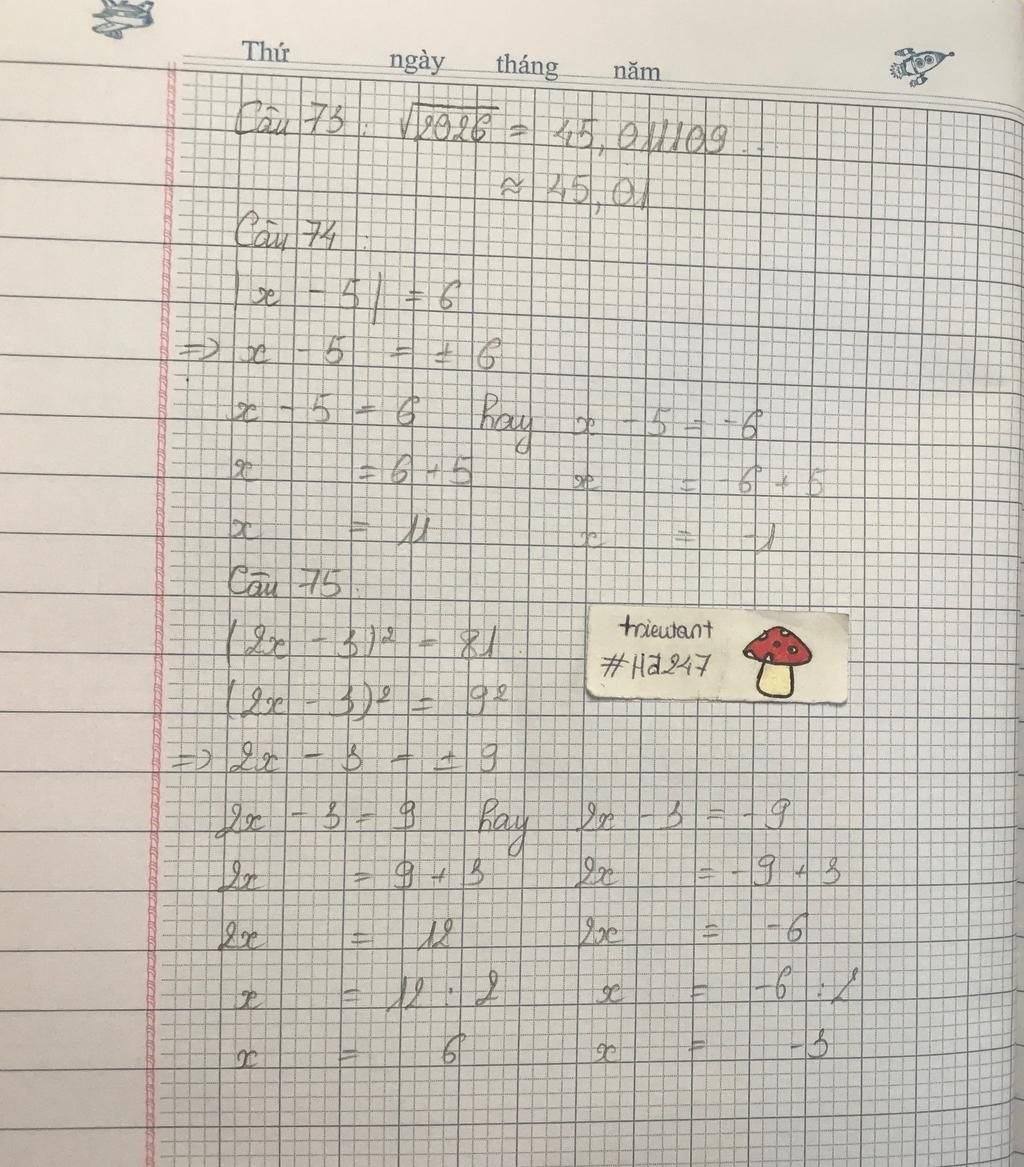 Thứ ngày tháng năm
Câu 73 : √2026 = 45,011109...
≈ 45,01
Câu 74 :
|x - 5| = 6
=> x - 5 = ± 6
x - 5 = 6 hay x - 5 = -6
x = 6 + 5 x = -6 + 5
x = 11 x = -1
Câu 75 :
(2x - 3)² = 81
(2x - 3)² = 9²
=> 2x - 3 = ± 9
2x - 3 = 9 hay 2x - 3 = -9
2x = 9 + 3 2x = -9 + 3
2x = 12 2x = -6
x = 12 : 2 x = -6 : 2
x = 6 x = -3
trieutant
#Hd247